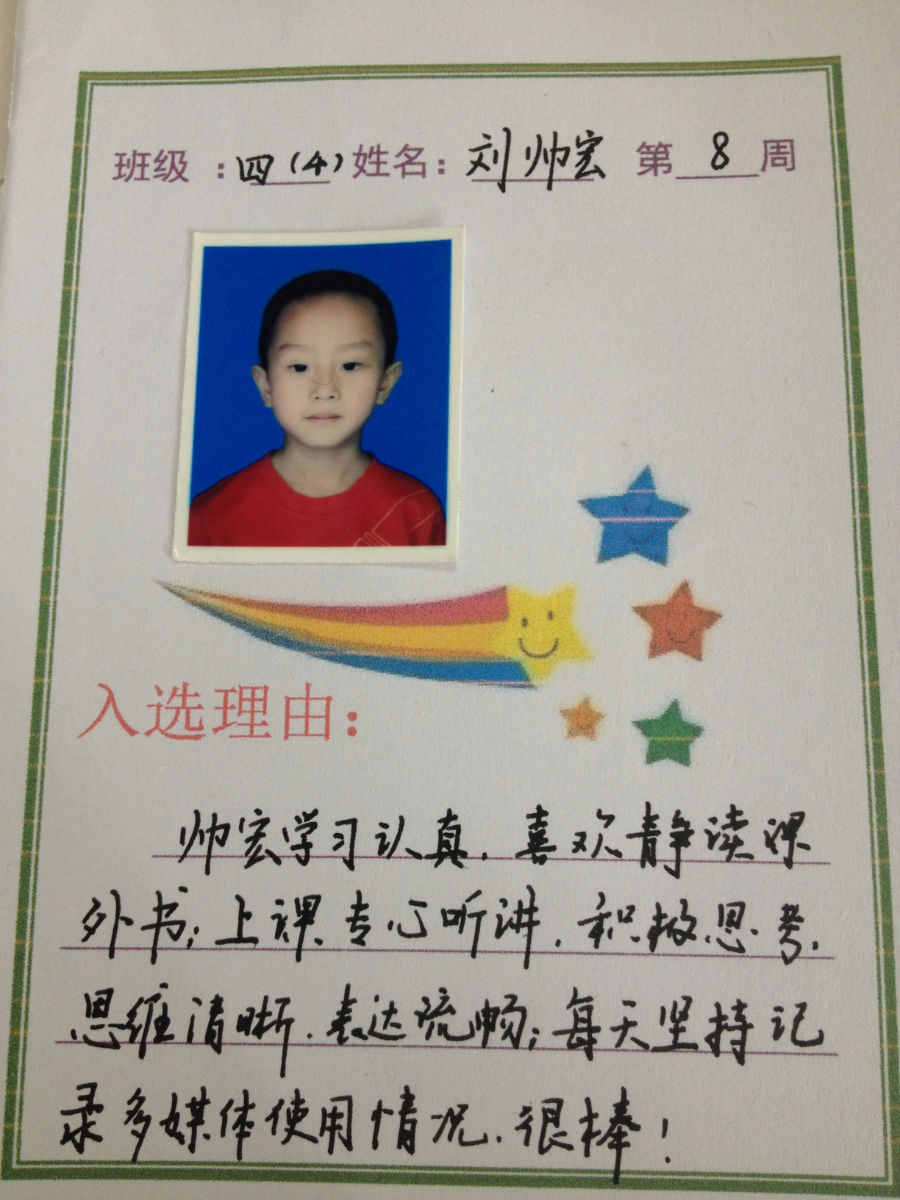 班级：四（4）姓名：刘帅宏 第 8 周
入选理由：
帅宏学习认真，喜欢静读课
外书；上课专心听讲，积极思考，
思维清晰，表达流畅；每天坚持记
录多媒体使用情况，很棒！